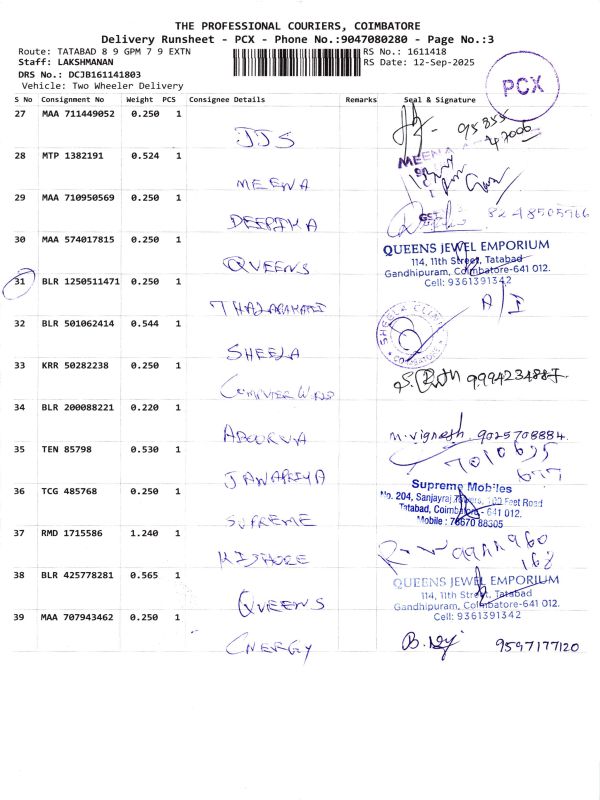 THE PROFESSIONAL COURIERS, COIMBATORE
Delivery Runsheet - PCX - Phone No.:9047080280 - Page No.:3
Route: TATABAD 8 9 GPM 7 9 EXTN RS No.: 1611418
Staff: LAKSHMANAN RS Date: 12-Sep-2025
DRS No.: DCJB161141803
Vehicle: Two Wheeler Delivery
PCX
S No Consignment No Weight PCS Consignee Details Remarks Seal & Signature
27 MAA 711449052 0.250 1
JJS
95855
47006
28 MTP 1382191 0.524 1
MEENA
MEENA
29 MAA 710950569 0.250 1
DEEPIKA
8248505966
30 MAA 574017815 0.250 1
QUEENS
QUEENS JEWEL EMPORIUM
114, 11th Street, Tatabad
Gandhipuram, Coimbatore-641 012.
Cell: 9361391342
31 BLR 1250511471 0.250 1
A/I
32 BLR 501062414 0.544 1
SHEELA
SHEELA CLINIC
COIMBATORE
33 KRR 50282238 0.250 1
34 BLR 200088221 0.220 1
APOORVA
M.Vignesh. 9025708884.
35 TEN 85798 0.530 1
JAWAPRIYA
7010635
677
36 TCG 485768 0.250 1
SUPREME
Supreme Mobiles
No. 204, Sanjayraj Towers, 100 Feet Road
Tatabad, Coimbatore - 641 012.
Mobile : 76670 88505
37 RMD 1715586 1.240 1
KISHORE
38 BLR 425778281 0.565 1
QUEENS
QUEENS JEWEL EMPORIUM
114, 11th Street, Tatabad
Gandhipuram, Coimbatore-641 012.
Cell: 9361391342
39 MAA 707943462 0.250 1
ENERGY
9597177120